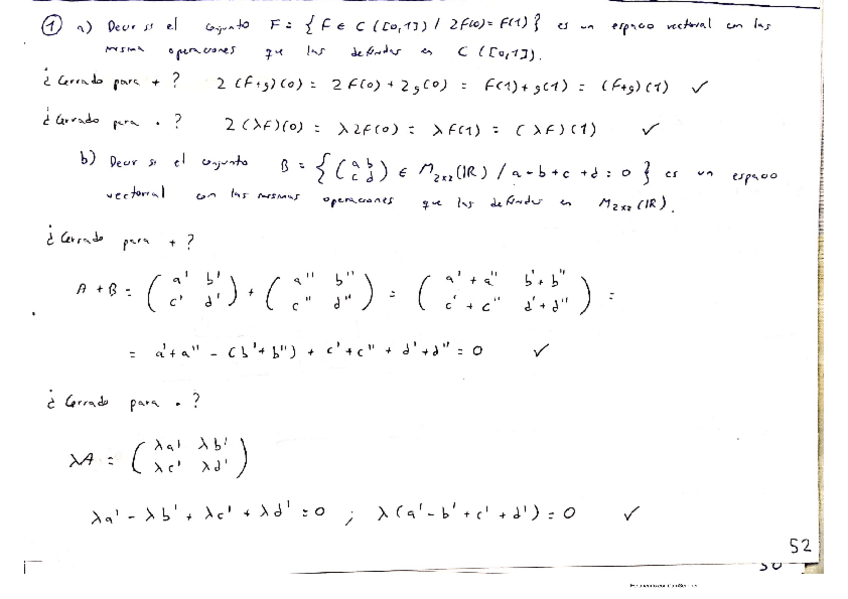 ① a) Decir si el conjunto F = { f ∈ C([0,1]) / 2f(0) = f(1) } es un espacio vectorial con las
misma operaciones que las definidas en C([0,1]).
¿Cerrado para + ? 2(f+g)(0) = 2f(0) + 2g(0) = f(1) + g(1) = (f+g)(1) ✓
¿Cerrado para · ? 2(λf)(0) = λ2f(0) = λf(1) = (λf)(1) ✓
b) Decir si el conjunto B = { (a b; c d) ∈ M₂ₓ₂(IR) / a - b + c + d = 0 } es un espacio
vectorial con las mismas operaciones que las definidas en M₂ₓ₂(IR).
¿Cerrado para + ?
A + B = (a' b'; c' d') + (a'' b''; c'' d'') = (a' + a'' b' + b''; c' + c'' d' + d'') =
= a' + a'' - (b' + b'') + c' + c'' + d' + d'' = 0 ✓
¿Cerrado para · ?
λA = (λa' λb'; λc' λd')
λa' - λb' + λc' + λd' = 0 ; λ(a' - b' + c' + d') = 0 ✓
52